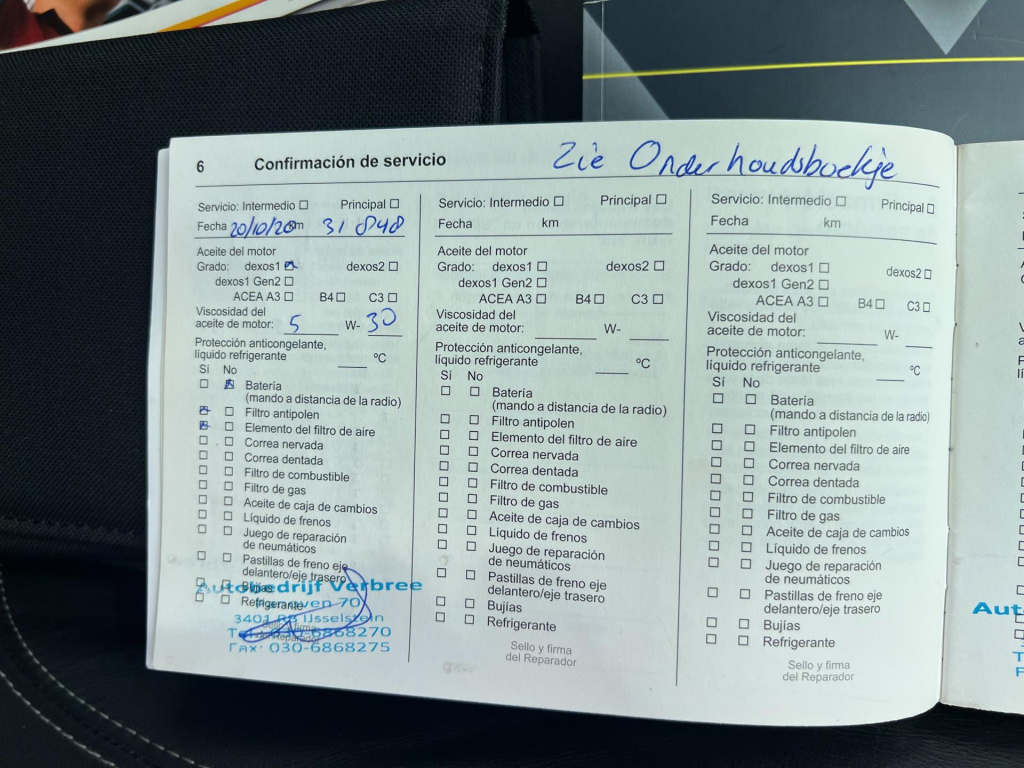 6 Confirmación de servicio
Zie Onderhoudsboekje
Servicio: Intermedio ☐ Principal ☐
Fecha 20/10/20 km 31 848
Aceite del motor
Grado: dexos1 ☒ dexos2 ☐
dexos1 Gen2 ☐
ACEA A3 ☐ B4 ☐ C3 ☐
Viscosidad del
aceite de motor: 5 W- 30
Protección anticongelante,
líquido refrigerante ºC
Sí No
☐ ☒ Batería
(mando a distancia de la radio)
☒ ☐ Filtro antipolen
☒ ☐ Elemento del filtro de aire
☐ ☐ Correa nervada
☐ ☐ Correa dentada
☐ ☐ Filtro de combustible
☐ ☐ Filtro de gas
☐ ☐ Aceite de caja de cambios
☐ ☐ Líquido de frenos
☐ ☐ Juego de reparación
de neumáticos
☐ ☐ Pastillas de freno eje
delantero/eje trasero
☐ ☐ Bujías
☐ ☐ Refrigerante
Sello y firma
Reparador
Autobedrijf Verbree
70
3401 RB IJsselstein
Tel: 030-6868270
Fax: 030-6868275
Servicio: Intermedio ☐ Principal ☐
Fecha km
Aceite del motor
Grado: dexos1 ☐ dexos2 ☐
dexos1 Gen2 ☐
ACEA A3 ☐ B4 ☐ C3 ☐
Viscosidad del
aceite de motor: W-
Protección anticongelante,
líquido refrigerante ºC
Sí No
☐ ☐ Batería
(mando a distancia de la radio)
☐ ☐ Filtro antipolen
☐ ☐ Elemento del filtro de aire
☐ ☐ Correa nervada
☐ ☐ Correa dentada
☐ ☐ Filtro de combustible
☐ ☐ Filtro de gas
☐ ☐ Aceite de caja de cambios
☐ ☐ Líquido de frenos
☐ ☐ Juego de reparación
de neumáticos
☐ ☐ Pastillas de freno eje
delantero/eje trasero
☐ ☐ Bujías
☐ ☐ Refrigerante
Sello y firma
del Reparador
Servicio: Intermedio ☐ Principal ☐
Fecha km
Aceite del motor
Grado: dexos1 ☐ dexos2 ☐
dexos1 Gen2 ☐
ACEA A3 ☐ B4 ☐ C3 ☐
Viscosidad del
aceite de motor: W-
Protección anticongelante,
líquido refrigerante ºC
Sí No
☐ ☐ Batería
(mando a distancia de la radio)
☐ ☐ Filtro antipolen
☐ ☐ Elemento del filtro de aire
☐ ☐ Correa nervada
☐ ☐ Correa dentada
☐ ☐ Filtro de combustible
☐ ☐ Filtro de gas
☐ ☐ Aceite de caja de cambios
☐ ☐ Líquido de frenos
☐ ☐ Juego de reparación
de neumáticos
☐ ☐ Pastillas de freno eje
delantero/eje trasero
☐ ☐ Bujías
☐ ☐ Refrigerante
Sello y firma
del Reparador